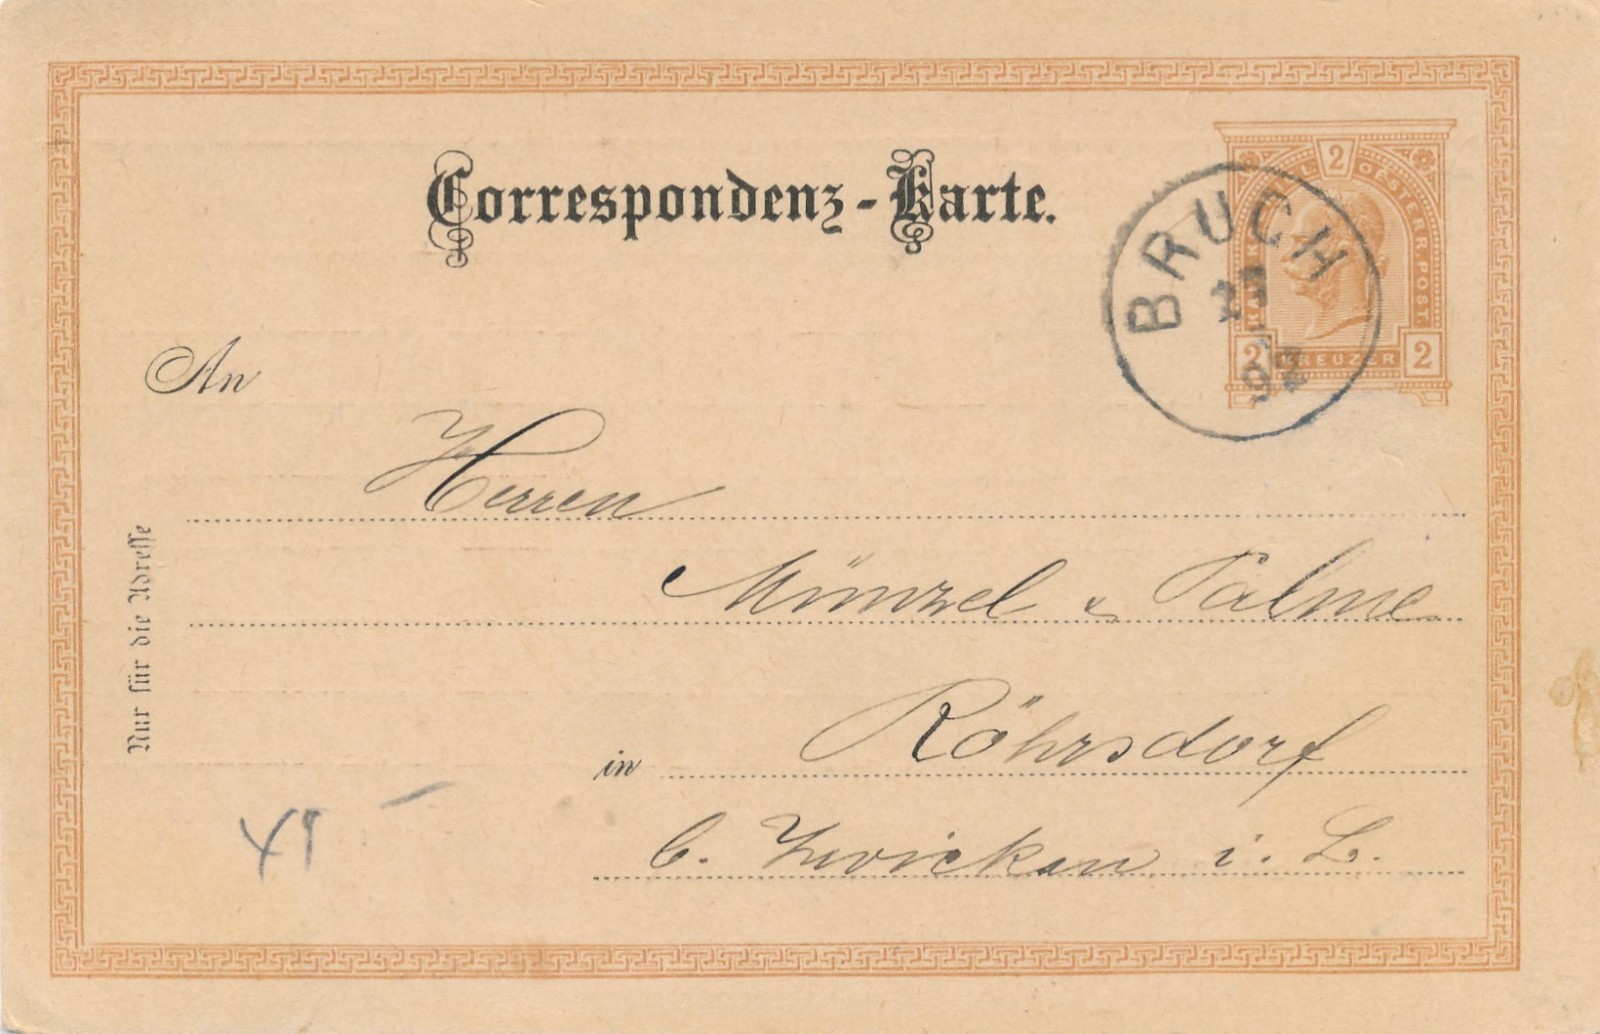 Correspondenz-Karte.
KAIS. KÖNIGL. OESTERR. POST.
2
2 KREUZER 2
BRUCH
27
92
An
Herren
Münzel & Palme
in Röhrsdorf
b. Zwickau i. B.
Nur für die Adresse